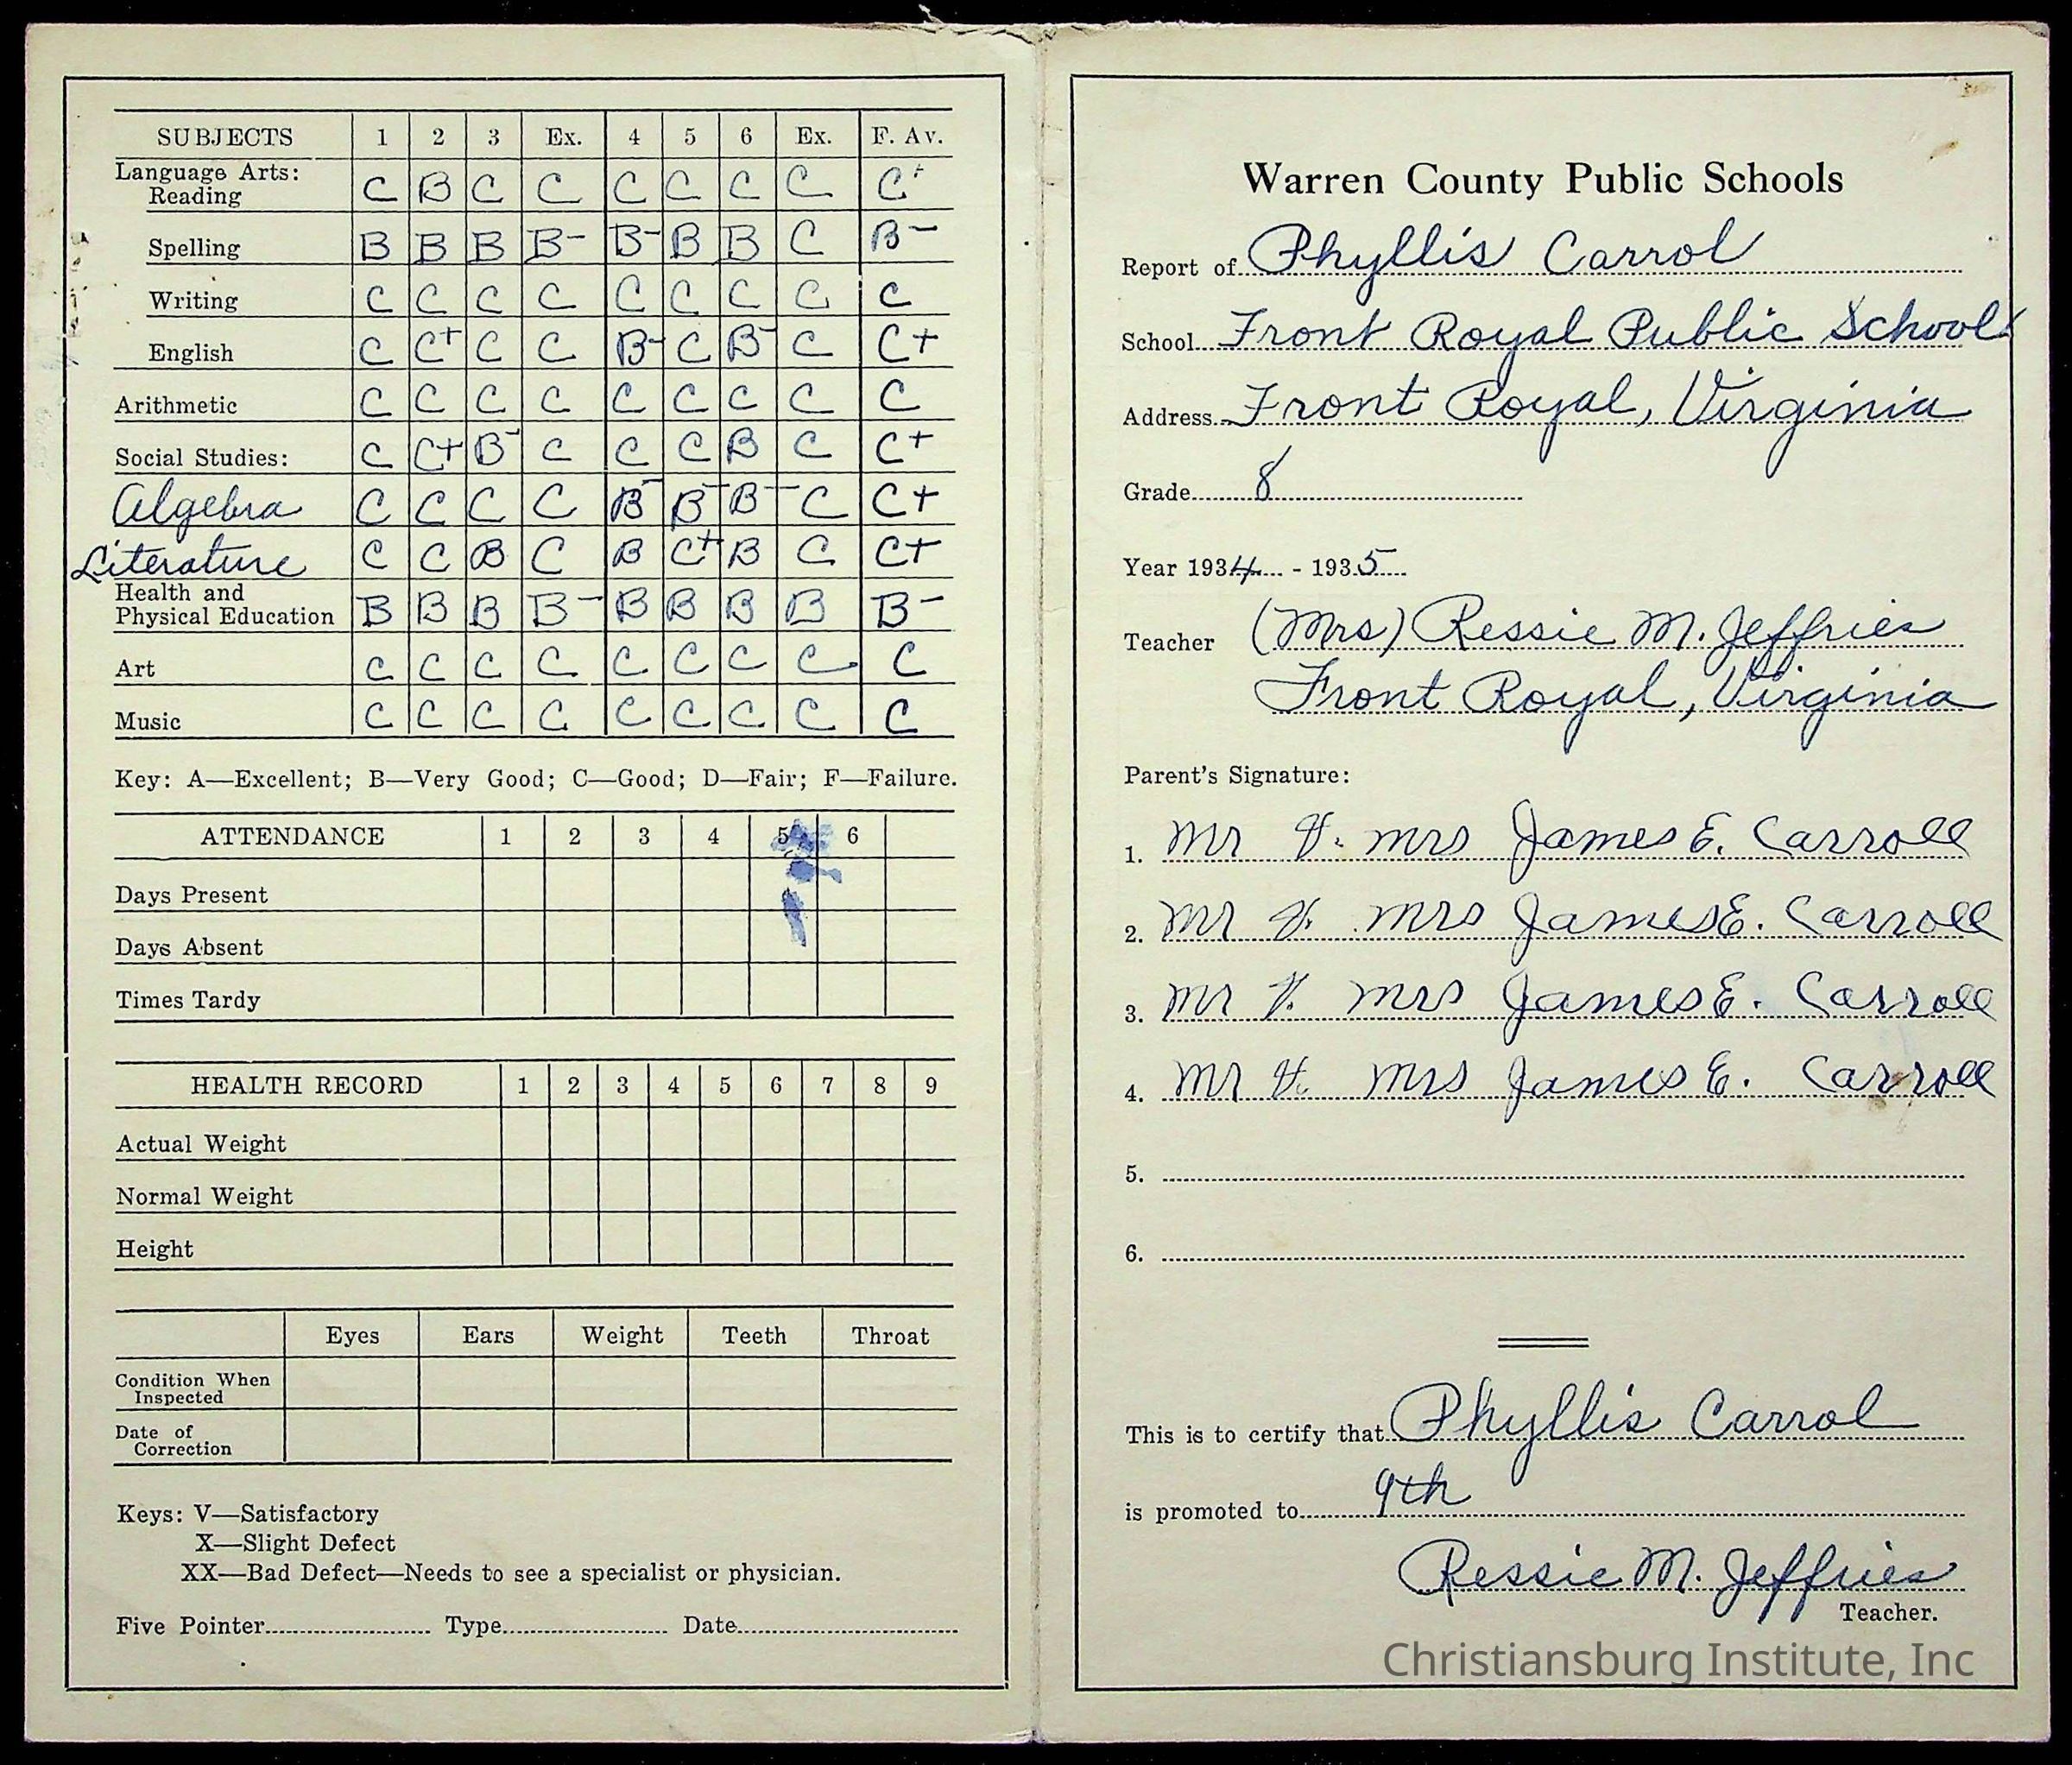 SUBJECTS 1 2 3 Ex. 4 5 6 Ex. F. Av.
Language Arts:
Reading C B C C C C C C C+
Spelling B B B B- B- B B C B-
Writing C C C C C C C C C
English C C+ C C B- C B- C C+
Arithmetic C C C C C C C C C
Social Studies: C C+ B- C C C B C C+
Algebra C C C C B- B- B- C C+
Literature C C B C B C+ B C C+
Health and
Physical Education B B B B- B B B B B-
Art C C C C C C C C C
Music C C C C C C C C C
Key: A—Excellent; B—Very Good; C—Good; D—Fair; F—Failure.
ATTENDANCE 1 2 3 4 5 6
Days Present
Days Absent
Times Tardy
HEALTH RECORD 1 2 3 4 5 6 7 8 9
Actual Weight
Normal Weight
Height
Eyes Ears Weight Teeth Throat
Condition When
Inspected
Date of
Correction
Keys: V—Satisfactory
X—Slight Defect
XX—Bad Defect—Needs to see a specialist or physician.
Five Pointer Type Date
Warren County Public Schools
Report of Phyllis Carrol
School Front Royal Public Schools
Address Front Royal, Virginia
Grade 8
Year 1934 - 1935
Teacher (Mrs) Ressie M. Jeffries
Front Royal, Virginia
Parent's Signature:
1. Mr & Mrs James E. Carroll
2. Mr & Mrs James E. Carroll
3. Mr & Mrs James E. Carroll
4. Mr & Mrs James E. Carroll
5.
6.
This is to certify that Phyllis Carrol
is promoted to 9th
Ressie M. Jeffries
Teacher.
Christiansburg Institute, Inc